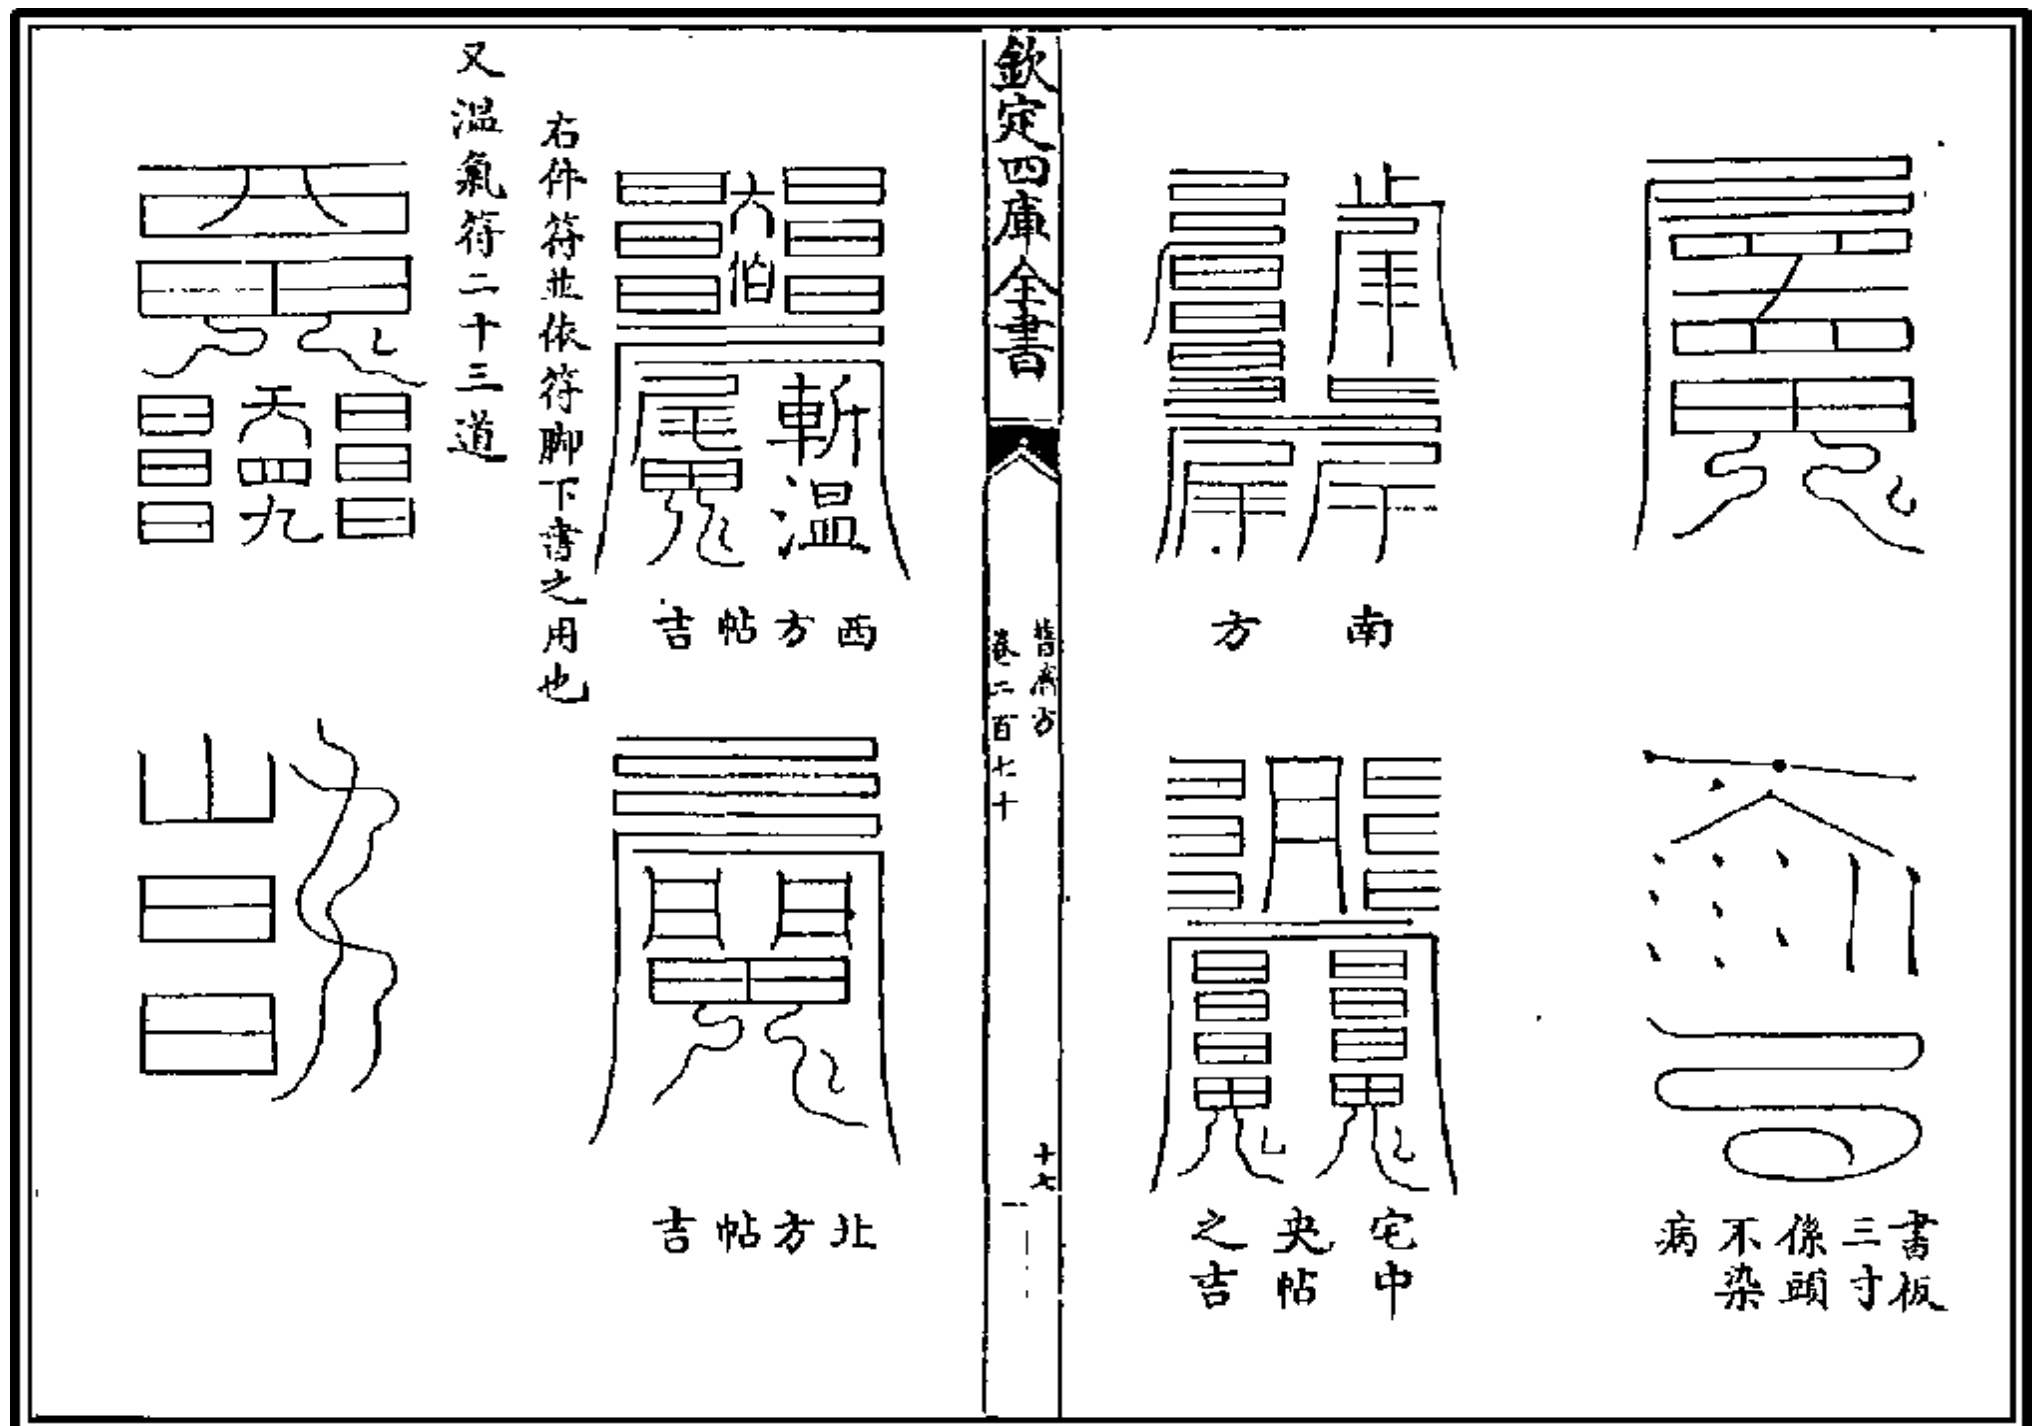 書板
三寸
係頭
不染
病
南方
宅中
央帖
之吉
欽定四庫全書
普濟方
卷二百七十
十七
大伯
斬溫
西方帖吉
北方帖吉
右件符並依符脚下書之用也
又溫氣符二十三道